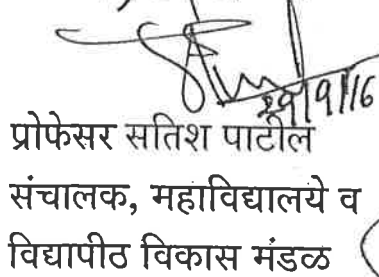 प्रोफेसर सतिश पाटील
संचालक, महाविद्यालये व
विद्यापीठ विकास मंडळ